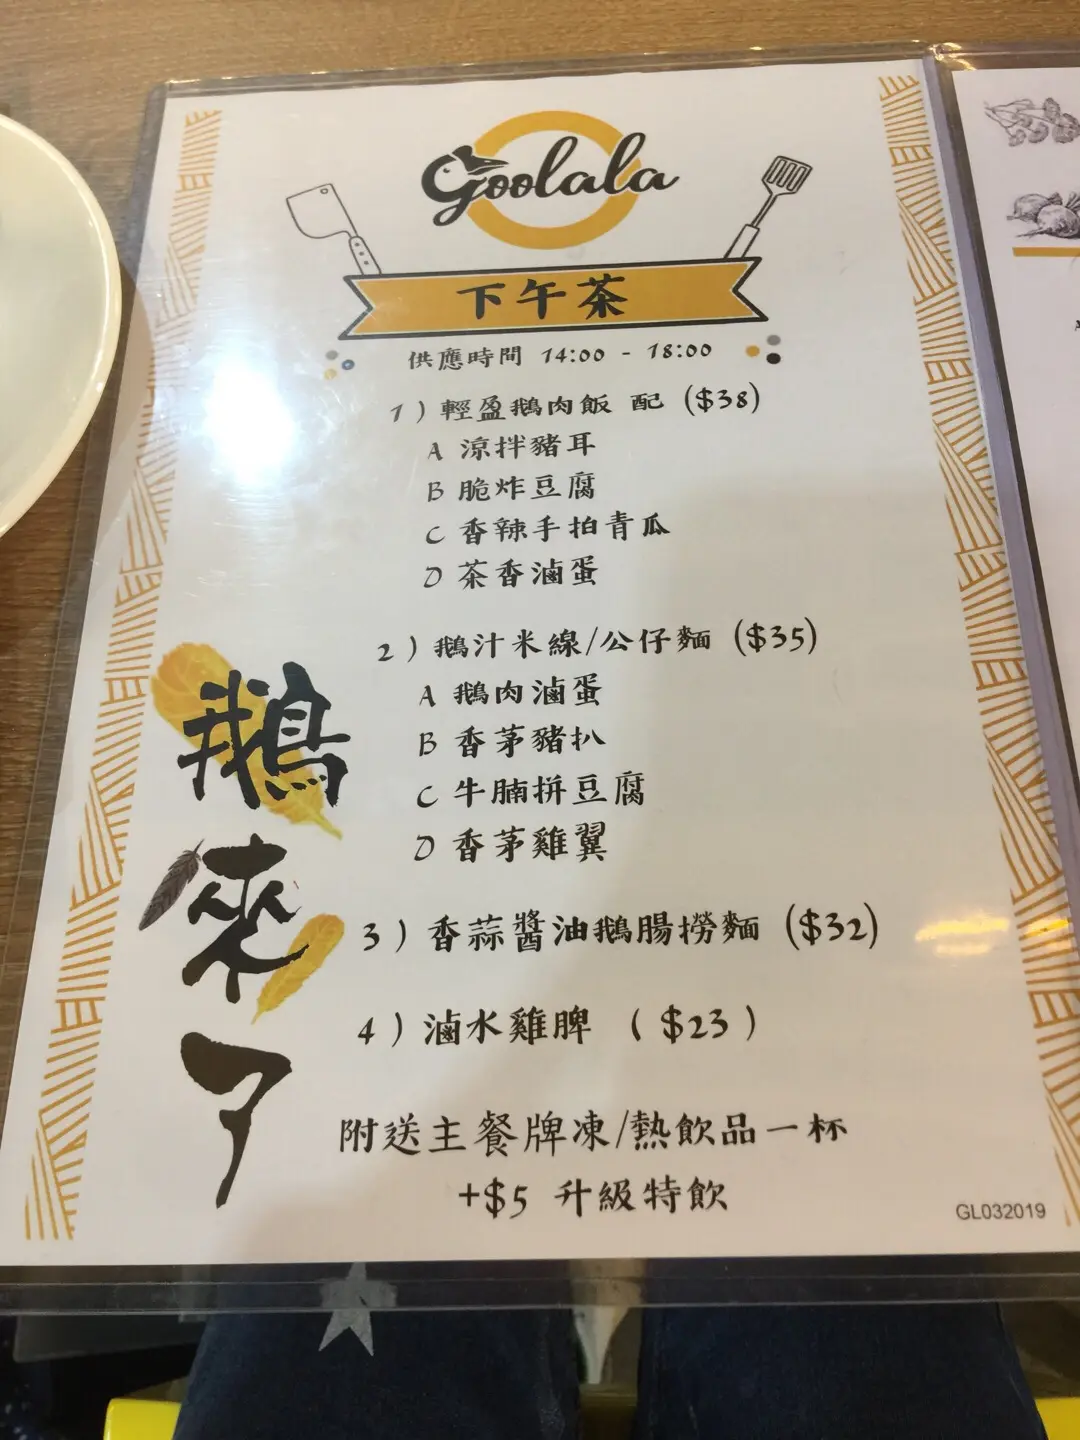 Goolala
下午茶
供應時間 14:00 - 18:00
1）輕盈鵝肉飯 配（$38）
A 涼拌豬耳
B 脆炸豆腐
C 香辣手拍青瓜
D 茶香滷蛋
2）鵝汁米線/公仔麵（$35）
A 鵝肉滷蛋
B 香茅豬扒
C 牛腩拼豆腐
D 香茅雞翼
3）香蒜醬油鵝腸撈麵（$32）
4）滷水雞髀（$23）
附送主餐牌凍/熱飲品一杯
+$5 升級特飲
鵝來了
GL032019